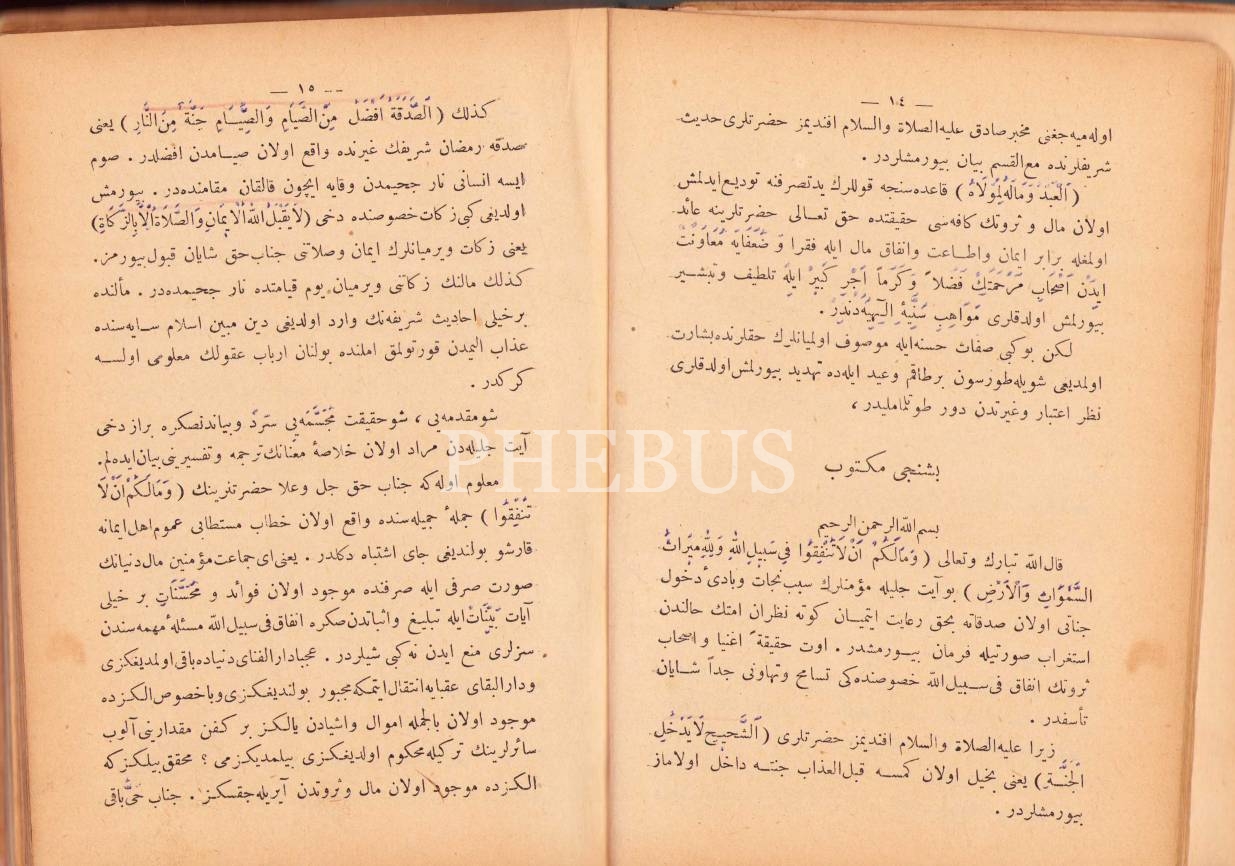 — ١٤ —
اوله‌میه‌جغنی مخبر صادق علیه الصلاة والسلام افندیمز حضرتلری حدیث
شریفلرنده مع القسم بیان بیورمشلردر .
( اَلْعَبْدُ وَمَالُهُ لِمَوْلَاهُ ) قاعده‌سنجه قوللرك ید تصرفنه تودیع ایدلمش
اولان مال و ثروتك کافه‌سی حقیقتده حق تعالی حضرتلرینه عائد
اولمغله برابر ایمان واطاعت وانفاق مال ایله فقرا وَ ضُعَفَایَه مُعَاوَنَتْ
ایدَنْ اَصْحَابِ مَرْحَمَتِكْ فَضْلاً وَكَرَمًا اَجْرِ كَبِيرْ ایله تلطیف وتبشیر
بیورلمش اولدقلری مَوَاهِبِ سَنِيَّهٔ اِلٓهِيَّه‌دَنْدِرْ .
لکن بو کبی صفات حسنه ایله موصوف اولمیانلرك حقلرنده بشارت
اولمدیغی شویله طورسون برطاقم وعید ایله‌ده تهدید بیورلمش اولدقلری
نظر اعتبار وغیرتدن دور طوتلمامليدر ،
بشنجی مکتوب
بسم الله الرحمن الرحیم
قال الله تبارك وتعالی ( وَمَالَكُمْ اَنْ لَاتُنْفِقُوا فِي سَبِيلِ اللّٰهِ وَلِلّٰهِ مِيرَاثُ
السَّمٰوَاتِ وَالْاَرْضِ ) بو آیت جلیله مؤمنلرك سبب نجات وبادیٔ دخول
جنانی اولان صدقاته بحق رعایت ایتمیان کوته نظران امتك حالندن
استغراب صورتیله فرمان بیورمشدر . اوت حقیقةً اغنیا واصحاب
ثروتك انفاق فی سبیل الله خصوصنده‌کی تسامح وتهاونی جداً شایان
تأسفدر .
زیرا علیه الصلاة والسلام افندیمز حضرتلری ( اَلشَّحِيحُ لَايَدْخُلُ
الْجَنَّةَ ) یعنی بخیل اولان کمسه قبل العذاب جنته داخل اولاماز
بیورمشلردر .
— ١٥ —
کذلك ( اَلصَّدَقَةُ اَفْضَلُ مِنَ الصِّيَامِ وَالصِّيَامُ جُنَّةٌ مِنَ النَّارِ ) یعنی
صدقه رمضان شریفك غیرنده واقع اولان صیامدن افضلدر . صوم
ایسه انسانی نار جحیمدن وقایه ایچون قالقان مقامنده‌در . بیورمش
اولدیغی کبی زکات خصوصنده دخی ( لَايَقْبَلُ اللّٰهُ الْاِيمَانَ وَالصَّلَاةَ اِلَّا بِالزَّكَاةِ )
یعنی زکات ویرمیانلرك ایمان وصلاتنی جناب حق شایان قبول بیورمز.
کذلك مالنك زکاتنی ویرمیان یوم قیامتده نار جحیمده‌در . مألنده
برخیلی احادیث شریفه‌نك وارد اولدیغی دین مبین اسلام سایه‌سنده
عذاب الیمدن قورتولمق املنده بولنان ارباب عقولك معلومی اولسه
کرکدر .
شو مقدمه‌یی ، شو حقیقت مُجَسَّمَه‌یی سرد وبیاندنصکره براز دخی
آیت جلیله‌دن مراد اولان خلاصهٔ معنانك ترجمه وتفسیرینی بیان ایده‌لم.
معلوم اوله که جناب حق جل وعلا حضرتلرینك ( وَمَالَكُمْ اَنْ لَا
تُنْفِقُوا ) جملهٔ جمیله‌سنده واقع اولان خطاب مستطابی عموم اهل ایمانه
قارشو بولندیغی جای اشتباه دکلدر . یعنی ای جماعت مؤمنین مال دنیانك
صورت صرفی ایله صرفنده موجود اولان فوائد و مُحَسَّنَاتِ بر خیلی
آیات بَيِّنَاتْ ایله تبلیغ واثباتدن صکره انفاق فی سبیل الله مسئلهٔ مهمه‌سندن
سزلری منع ایدن نه کبی شیلردر . عجبا دار الفنای دنیاده باقی اولمدیغکزی
ودار البقای عقبایه انتقال ایتمکه مجبور بولندیغکزی وباخصوص الکزده
موجود اولان بالجمله اموال واشیادن یالکز بر کفن مقدارینی آلوب
سائرلرینك ترکیله محکوم اولدیغکزی بیلمدیکزمی ؟ محقق بیلکز که
الکزده موجود اولان مال و ثروتدن آیریله‌جقسکز . جناب حَیِّ باقی
PHEBUS